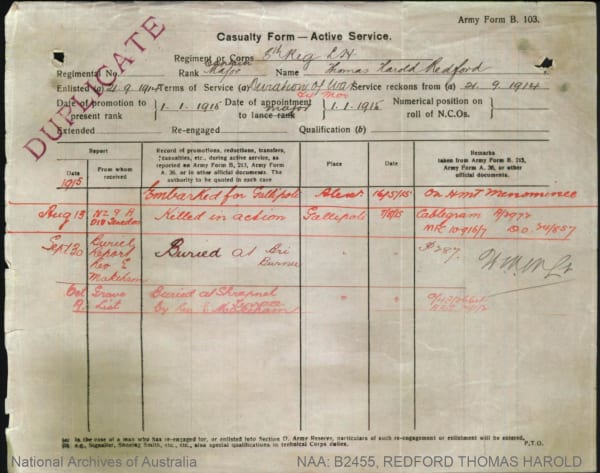 Army Form B. 103.
DUPLICATE
Casualty Form — Active Service.
Regiment or Corps 8th Reg L H
Regimental No. Rank Captain Major Name Thomas Harold Redford
Enlisted (a) 21.9.1914 Terms of Service (a) Duration of War Service reckons from (a) 21.9.1914
Date of promotion to present rank 1.1.1915 Date of appointment to lance rank major 1.1.1915 Numerical position on roll of N.C.Os.
Extended Re-engaged Qualification (b)
Report
Date From whom received
Record of promotions, reductions, transfers, casualties, etc., during active service, as reported on Army Form B. 213, Army Form A. 36, or in other official documents. The authority to be quoted in each case
Place
Date
Remarks taken from Army Form B. 213, Army Form A. 36, or other official documents.
1915
Embarked for Gallipoli Alexa 16/5/15 On HMT Menominee
Aug 13 Killed in action Gallipoli 7/8/15 Cablegram
Sept 30 Burial Report Rev E Makeham Buried at " " 
Oct 9 Grave List Buried at Shrapnel Terrace by Rev E Makeham " "
(a) In the case of a man who has re-engaged for, or enlisted into Section D, Army Reserve, particulars of such re-engagement or enlistment will be entered.
(b) e.g., Signaller, Shoeing Smith, etc., etc., also special qualifications in technical Corps duties.
P.T.O.
National Archives of Australia
NAA: B2455, REDFORD THOMAS HAROLD